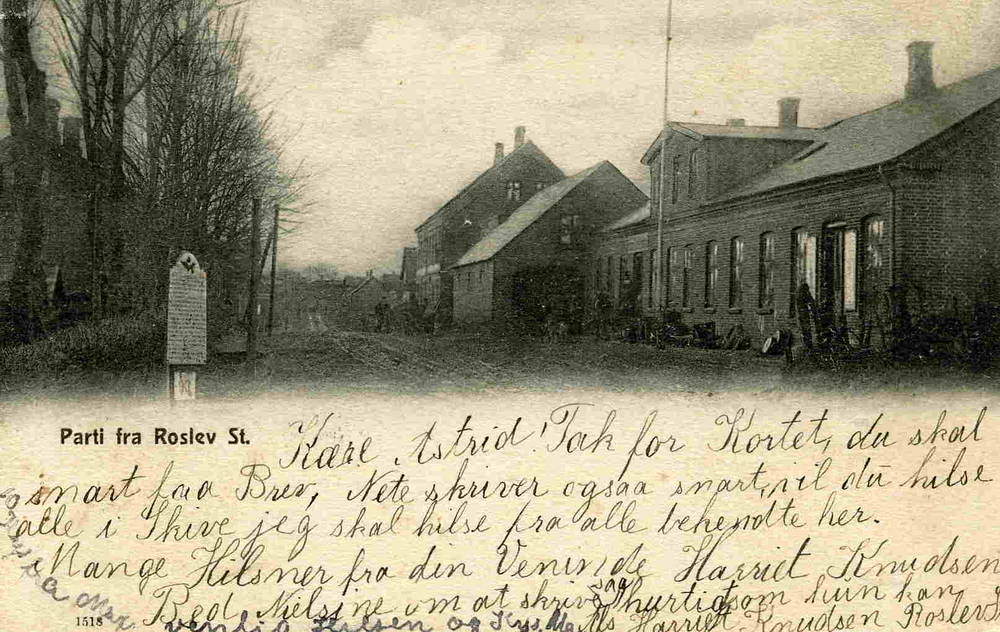 Parti fra Roslev St.
Kære Astrid! Tak for Kortet, du skal
snart faa Brev, Nete skriver ogsaa snart, vil du hilse
alle i Skive jeg skal hilse fra alle bekendte her.
Mange Hilsner fra din Veninde Harriet Knudsen
Bed Nielsine om at skrive saa hurtig som hun kan
Harriet Knudsen Roslev
venlig Hilsen og Kys
fra
1518